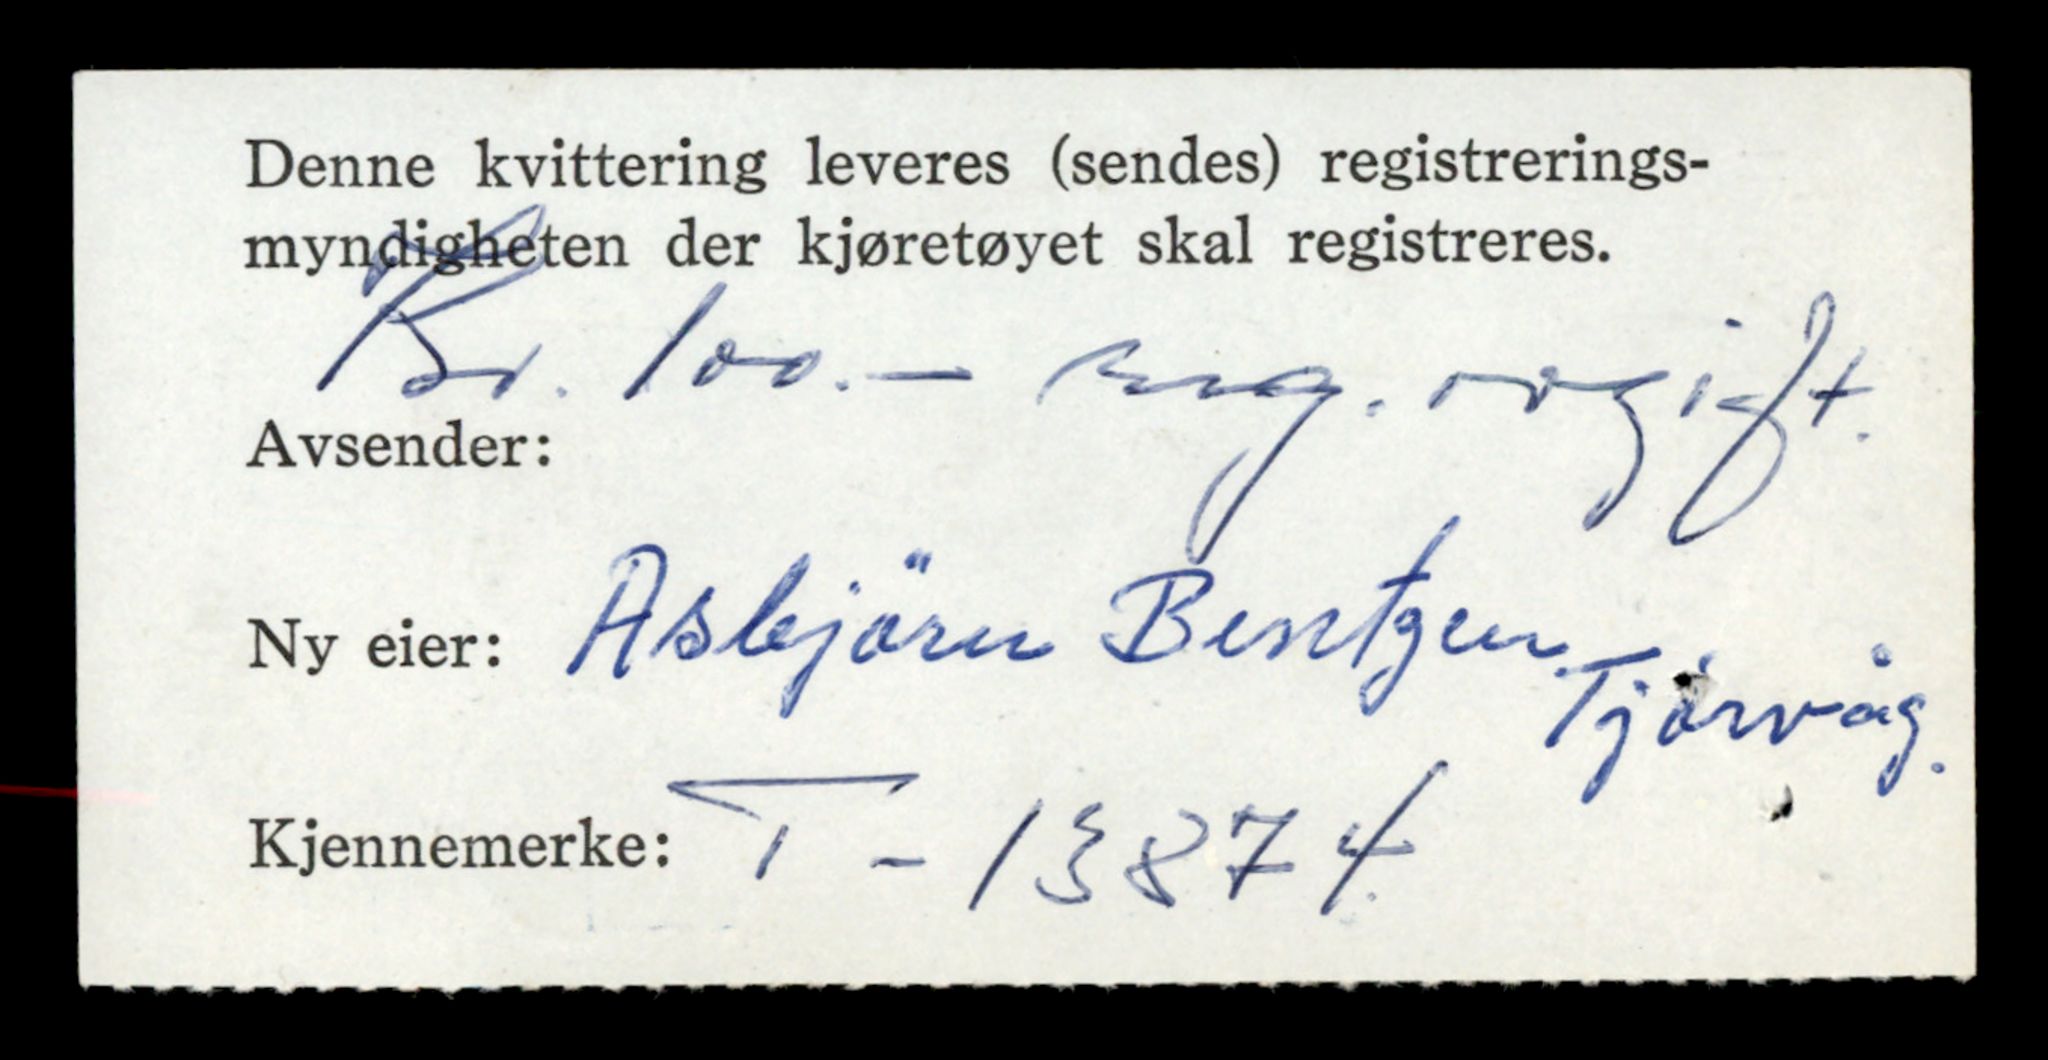 Denne kvittering leveres (sendes) registrerings-
myndigheten der kjøretøyet skal registreres.
Kr. 100.- reg. avgift.
Avsender:
Ny eier: Asbjörn Bentzen
Tjörvåg.
Kjennemerke: T-13874